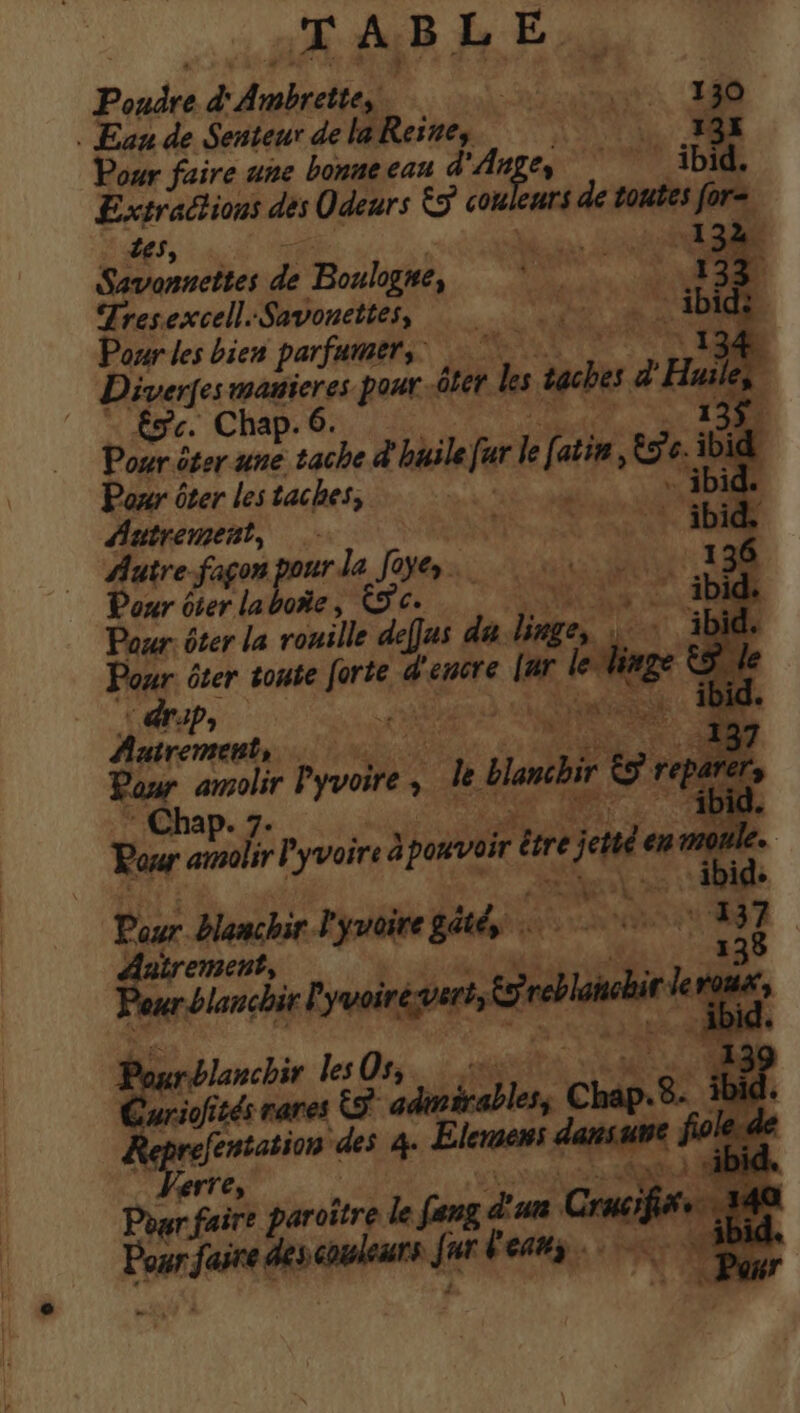 TABLE
Poudre d'Ambrette, 130
Eau de Senteur de la Reine, 131
Pour faire une bonne eau d'Ange, ibid.
Extractions des Odeurs & couleurs de toutes ſor-
tes, 132
Savonnettes de Boulogne, 133
Tres.excell. Savonettes, ibid.
Pour les bien parfumer, 134
Diverſes manieres pour ôter les taches d'Huile,
&c. Chap. 6. 135
Pour ôter une tache d'huile ſur le ſatin, &c. ibid
Pour ôter les taches, ibid.
Autrement, ibid.
Autre façon pour la ſoye, 136
Pour ôter la boüe, &c. ibid.
Pour ôter la rouille deſſus du linge, ibid.
Pour ôter toute ſorte d'encre ſur le linge & le
drap, ibid.
Autrement, 137
Pour amolir l'yvoire, le blanchir & reparer,
Chap. 7. ibid.
Pour amolir l'yvoire à pouvoir être jetté en moule.
ibid.
Pour blanchir l'yvoire gâté, 137
Autrement, 138
Pour blanchir l'yvoire vert, & reblanchir le roux,
ibid.
Pour blanchir les Os, 139
Curioſités rares & admirables, Chap. 8. ibid.
Repreſentation des 4. Elemens dans une fiole de
Verre, ibid.
Pour faire paroître le ſang d'un Crucifix. 140
Pour faire des couleurs ſur l'eau, ibid.
Pour